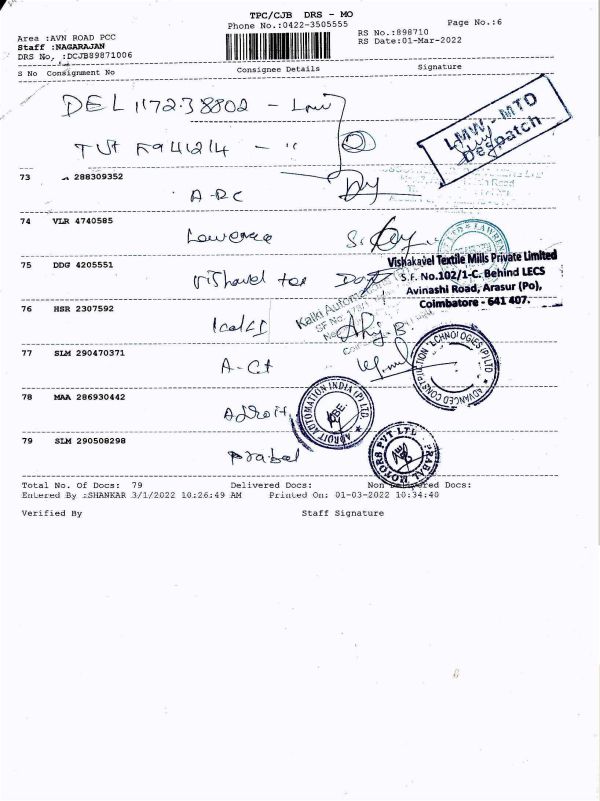 TPC/CJB DRS - MO
Phone No.:0422-3505555
Page No.:6
Area :AVN ROAD PCC
RS No.:898710
Staff :NAGARAJAN
RS Date:01-Mar-2022
DRS No, :DCJB89871006
S No Consignment No Consignee Details Signature
DEL 117238802 -
LMW - MTD
Despatch
73 288309352
A-RC
74 VLR 4740585
75 DDG 4205551
Vishakavel Textile Mills Private Limited
S.F. No.102/1-C. Behind LECS
Avinashi Road, Arasur (Po),
Coimbatore - 641 407.
76 HSR 2307592
77 SLM 290470371
A-Ct
ADVANCED CONSTRUCTION TECHNOLOGIES (P) LTD
78 MAA 286930442
Adroit
ADROIT AUTOMATION INDIA (P) LTD.
CBE.
79 SLM 290508298
Prabal
PRABAL MOTORS PVT LTD
Total No. Of Docs: 79 Delivered Docs: Non Delivered Docs:
Entered By :SHANKAR 3/1/2022 10:26:49 AM Printed On: 01-03-2022 10:34:40
Verified By Staff Signature